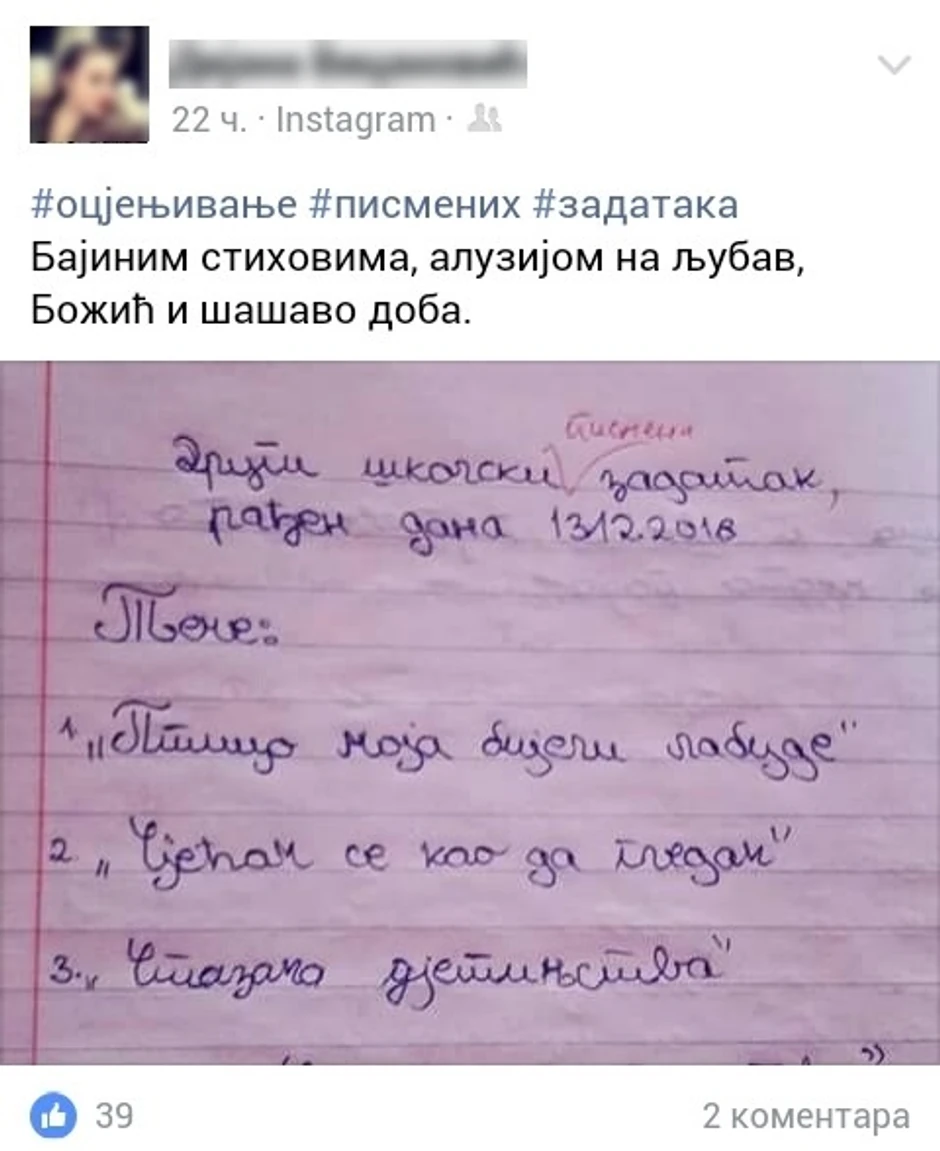 22 ч. · Instagram ·
#оцјењивање #писмених #задатака
Бајиним стиховима, алузијом на љубав,
Божић и шашаво доба.
писмени
Други школски задатак,
рађен дана 13.12.2018
Теме:
1 „Птицо моја бијели лабуде"
2 „Сјећам се као да гледам"
3. „Стазама дјетињства"
39
2 коментара